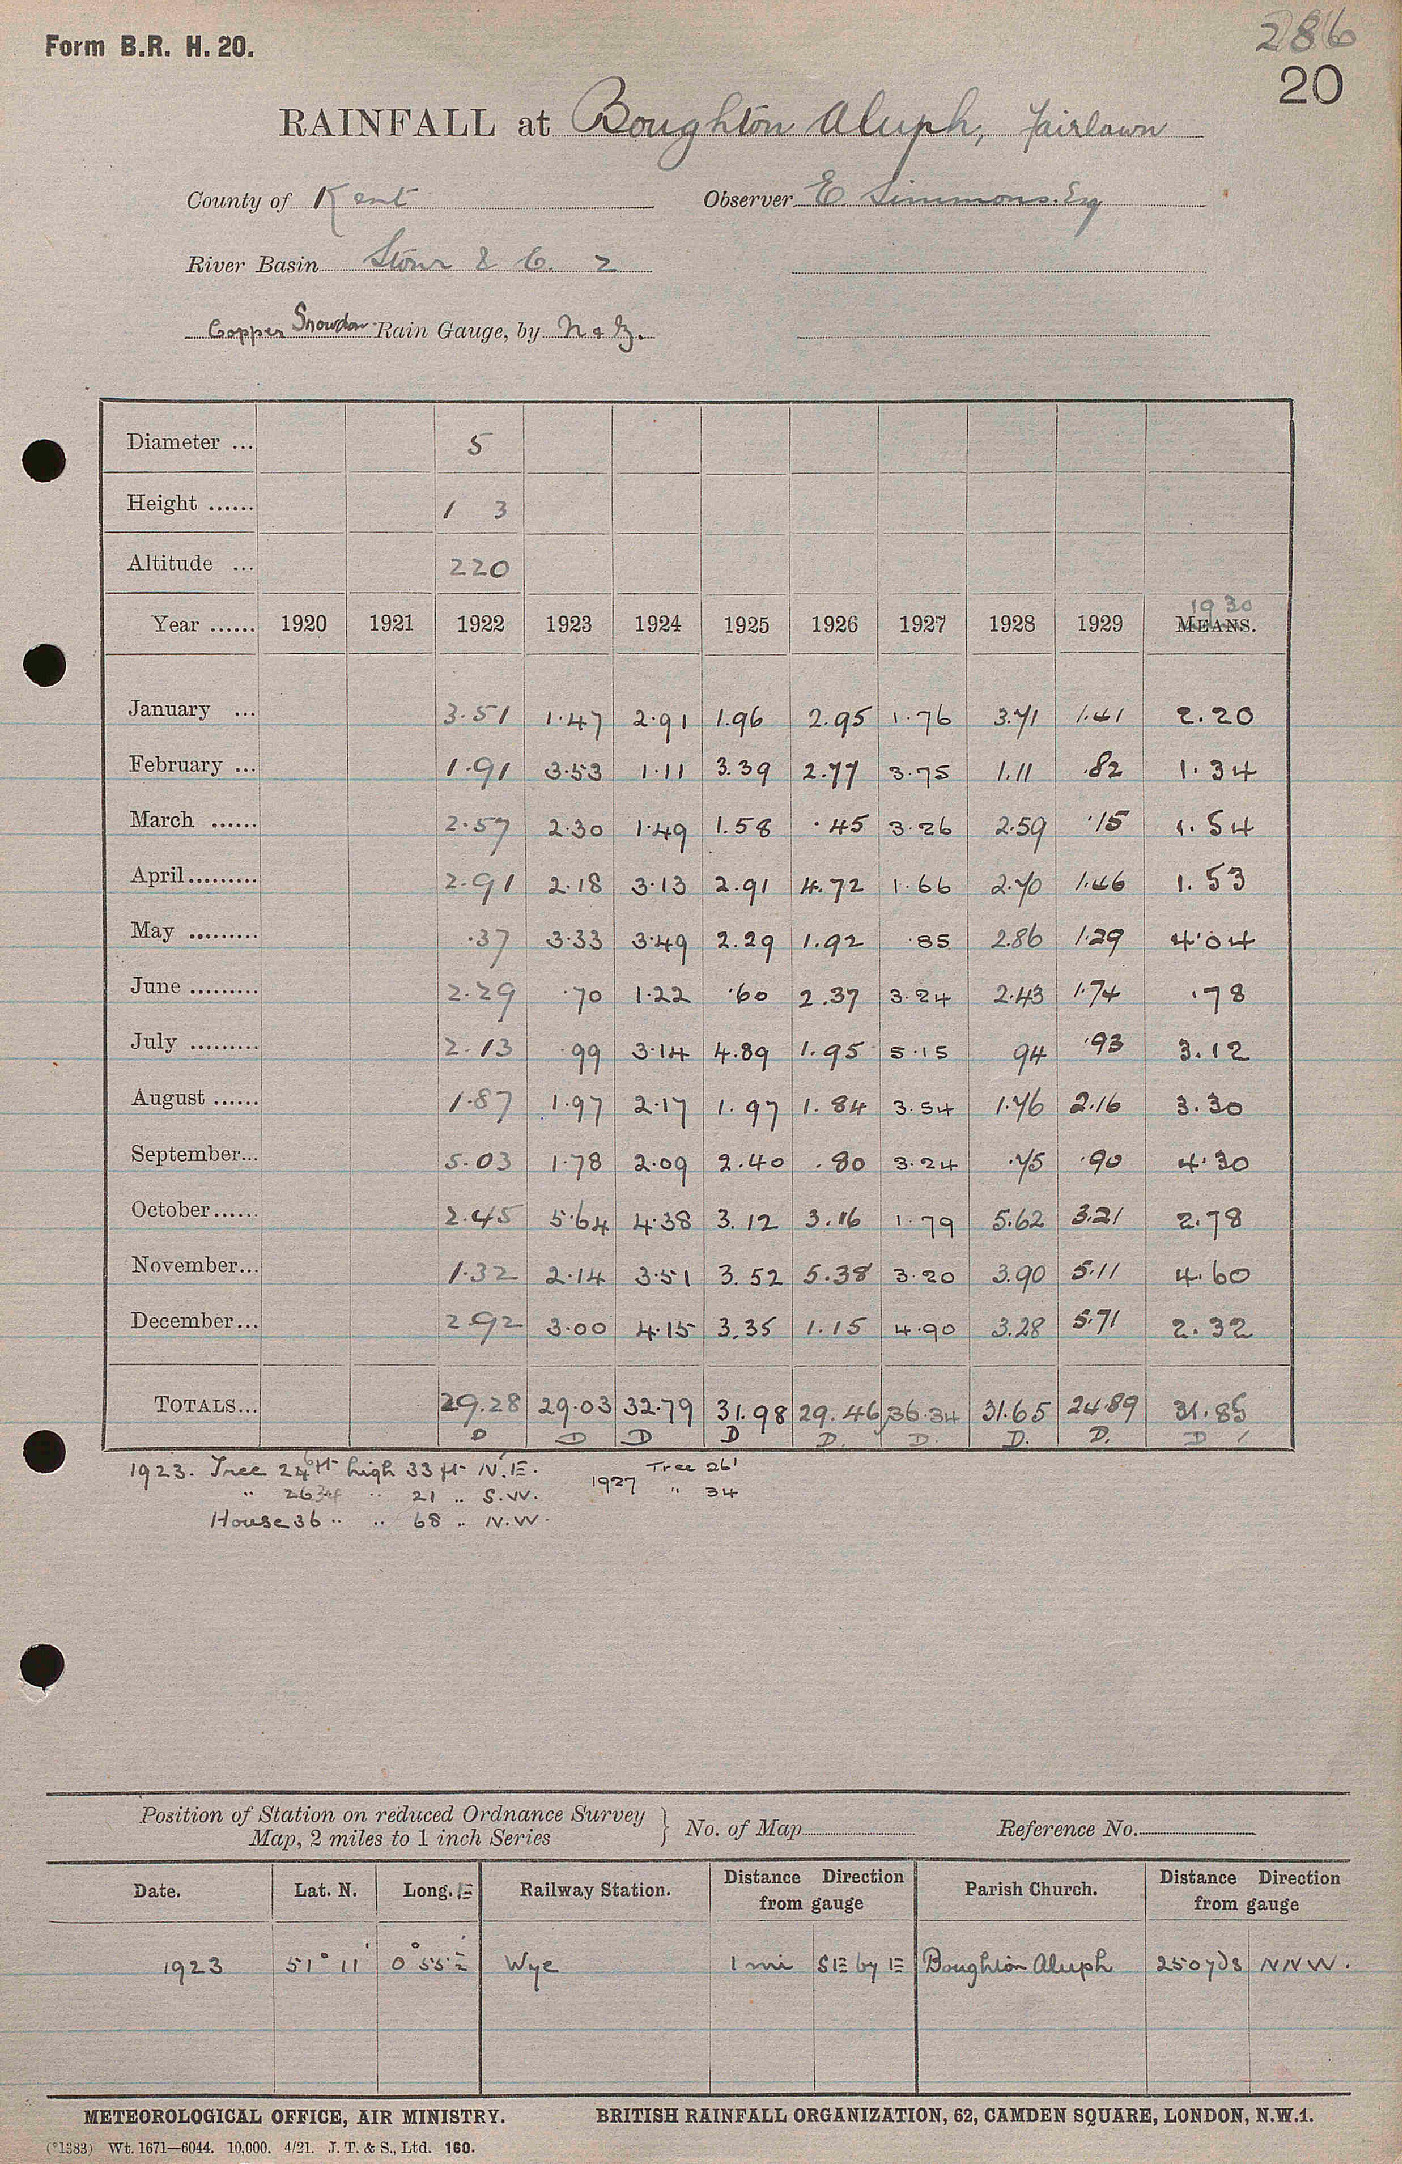 Form B.R. H. 20.
286
20
RAINFALL at Boughton Aluph, Fairlawn
County of Kent Observer E Simmons. Esq
River Basin Stour & C. 2
Copper Snowdon Rain Gauge, by N & Z.
Diameter ... 5
Height ...... 1 3
Altitude ... 220
1930
Year ...... 1920 1921 1922 1923 1924 1925 1926 1927 1928 1929 MEANS.
January ... 3.51 1.47 2.91 1.96 2.95 1.76 3.71 1.41 2.20
February ... 1.91 3.53 1.11 3.39 2.77 3.75 1.11 .82 1.34
March ...... 2.57 2.30 1.49 1.58 .45 3.26 2.59 .15 1.54
April......... 2.91 2.18 3.13 2.91 4.72 1.66 2.70 1.46 1.53
May ......... .37 3.33 3.49 2.29 1.92 .85 2.86 1.29 4.04
June ......... 2.29 .70 1.22 .60 2.37 3.24 2.43 1.74 .78
July ......... 2.13 .99 3.14 4.89 1.95 5.15 94 .93 3.12
August ...... 1.87 1.97 2.17 1.97 1.84 3.54 1.76 2.16 3.30
September... 5.03 1.78 2.09 2.40 .80 3.24 .75 .90 4.30
October...... 2.45 5.64 4.38 3.12 3.16 1.79 5.62 3.21 2.78
November... 1.32 2.14 3.51 3.52 5.38 3.20 3.90 5.11 4.60
December... 2.92 3.00 4.15 3.35 1.15 4.90 3.28 5.71 2.32
TOTALS... 29.28 29.03 32.79 31.98 29.46 36.34 31.65 24.89 31.85
D D D D D. D. D. D. D
1923. Tree 24 ft high 33 ft N.E. 1927 Tree 26'
" 26 34 " 21 .. S.W. " 34
House 36 " " 68 .. N.W.
Position of Station on reduced Ordnance Survey
Map, 2 miles to 1 inch Series } No. of Map Reference No.
Date. Lat. N. Long. E Railway Station. Distance Direction from gauge Parish Church. Distance Direction from gauge
1923 51° 11' 0° 55½' Wye 1 mi SE by E Boughton Aluph 250 yds NNW.
METEOROLOGICAL OFFICE, AIR MINISTRY. BRITISH RAINFALL ORGANIZATION, 62, CAMDEN SQUARE, LONDON, N.W.1.
(*1383) Wt. 1671—6044. 10,000. 4/21. J. T. & S., Ltd. 160.